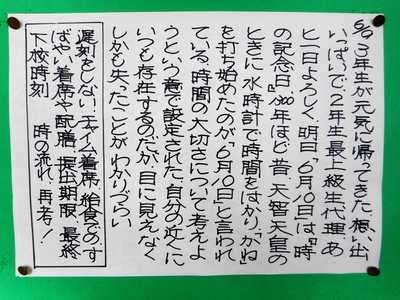 6/9 3年生が元気に帰ってきた。想い出
いっぱいで、2年生最上級生代理、あ
と一日よろしく。明日「6月10日」は「時
の記念日」。1300年ほど昔、天智天皇の
ときに水時計で時間をはかり、「かね」
を打ち始めたのが「6月10日」と言われ
ている。時間の大切さについて考えよ
うという意で設定された。自分の近くに
いつも存在するのだが、目に見えなく
しかも失ったことがわかりづらい
遅刻をしない!チャイム着席、給食でのす
ばやい着席や配膳、提出期限、最終
下校時刻 時の流れ、再考!